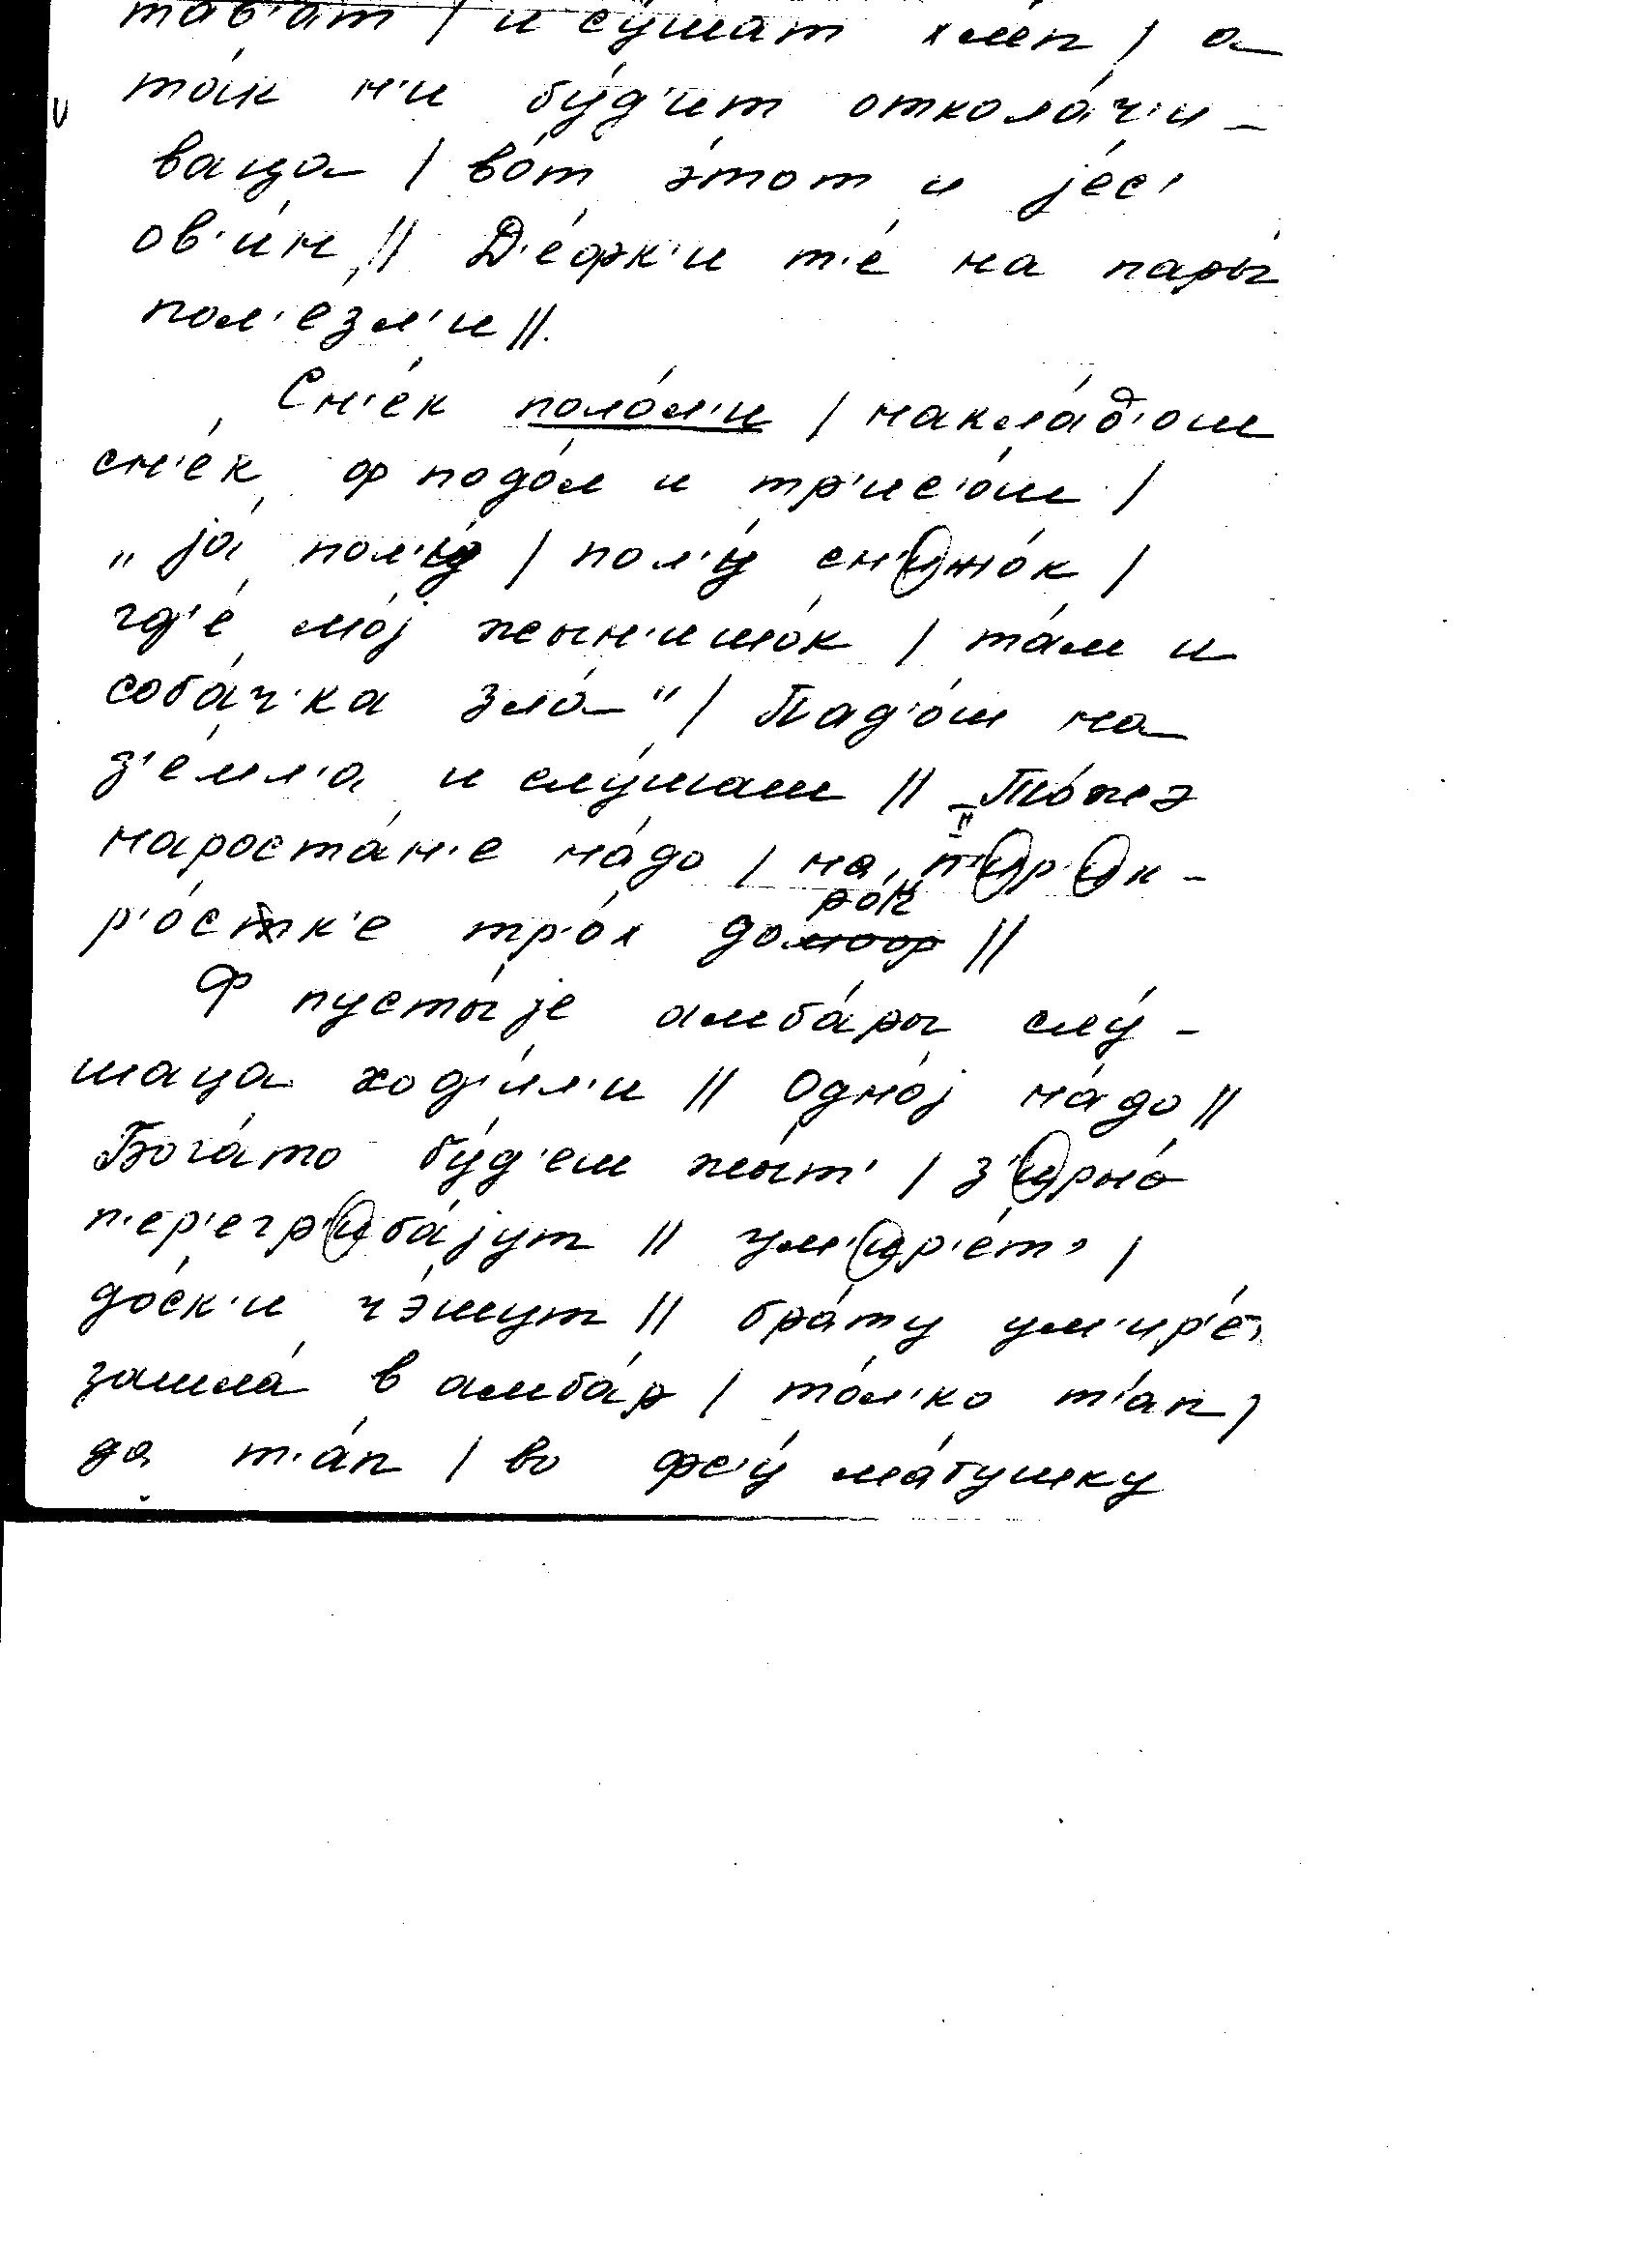 тав'ат / и су́шат хм'е́л / а
та́к н'и бу́д'ит откола́ч'и-
ваца / во́т э́тот и jе́с'
ов'и́н // Д'е́фк'и т'е́ на пары́
пол'е́зл'и //.
Сн'е́к поло́л'и / накла́д'ош
сн'е́к ф подо́л и тр'ис'о́ш /
„jа́ пол'у́ / пол'у́ сн'ижо́к /
гд'е́ мо́j жын'ишо́к / та́м и
соба́ч'ка зла́" / Пад'о́ш на
з'е́мл'а и слу́шаш // То́жэ
нароста́н'е на́до / на п'ир'ик-
р'о́стк'е тр'о́х доро́к //
Ф пусты́jе амба́ры слу́-
шаца ход'и́л'и // Одно́j на́до //
Бога́то бу́д'ем жы́т' / з'ирно́
п'ер'егр'иба́jут // ум'ир'е́т' /
до́ск'и ч'э́шут // бра́ту ум'ир'е́т'
зашла́ в амба́р / то́л'ко т'а́п /
да т'а́п / во фс'у́ ма́тушку